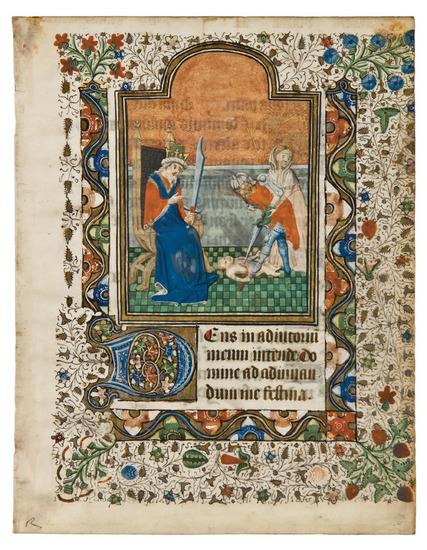 DEus in adiutoriū
meum intende do
mine ad adiuuan
dum me festina.